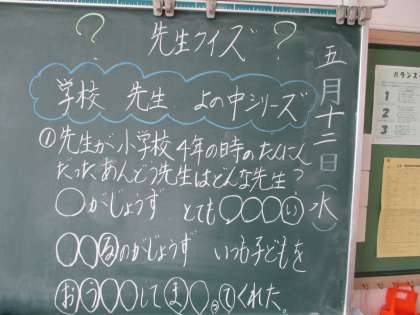 ? 先生クイズ ?
五月十二日(水)
学校 先生 よの中シリーズ
①先生が小学校4年の時のたんにん
だったあんどう先生はどんな先生?
○がじょうず とても○○○○い
○○るのがじょうず いつも子どもを
おう○○して ま○○ってくれた。
バランス
1
2
3